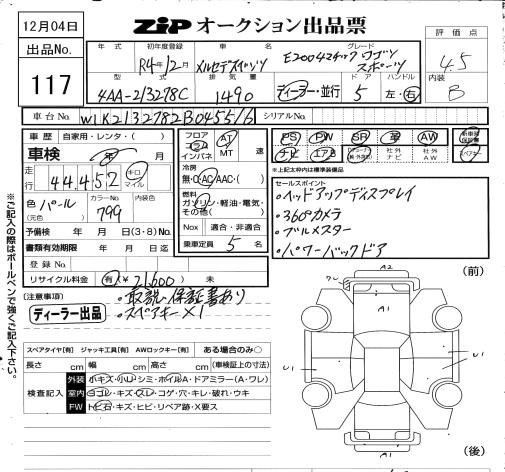 12月04日
ZIP オークション出品票
出品No.
117
年式
初年度登録
R4年12月
車名
メルセデスベンツ
グレード
E200 4マチックワゴン
スポーツ
評価点
4.5
内装
B
型式
4AA-213278C
排気量
1490
ディーラー・並行
ドア
5
ハンドル
左・右
車台No.
W1K2132782B045516
シリアルNo.
車歴 自家用・レンタ・( )
車検 年 月
走行 44,452 キロ マイル
色 パール
(元色)
カラーNo.
799
内装色
予備検 年 月 日(3・8)No.
書類有効期限 年 月 日迄
登録No.
リサイクル料金 有(¥21600) 未
フロア
コラム
インパネ
AT
MT 速
冷房
無・AC・AAC・( )
燃料
ガソリン・軽油・電気・
その他( )
Nox 適合・非適合
乗車定員 5 名
PS PW SR 革 AW
ナビ エアB
社外
ナビ
社外
AW
※上記太わくは標準装備品
セールスポイント
・ヘッドアップディスプレイ
・360°カメラ
・ブルメスター
・パワーバックドア
(注意事項)
ディーラー出品
・取説、保証書あり
・スペアキー×1
スペアタイヤ[有] ジャッキ工具[有] AWロックキー[有] ある場合のみ○
長さ cm 幅 cm 高さ cm (車検証上の寸法)
検査記入
外装 小キズ・小凹・シミ・ホイルA・ドアミラー(A・ワレ)
室内 ヨゴレ・キズ・スレ・コゲ・穴・キレ・破れ・ウキ
FW トビ石・キズ・ヒビ・リペア跡・X要ス
※ご記入の際はボールペンで強くご記入下さい。
(前)
A2
A1
U1
U1
A1
(後)